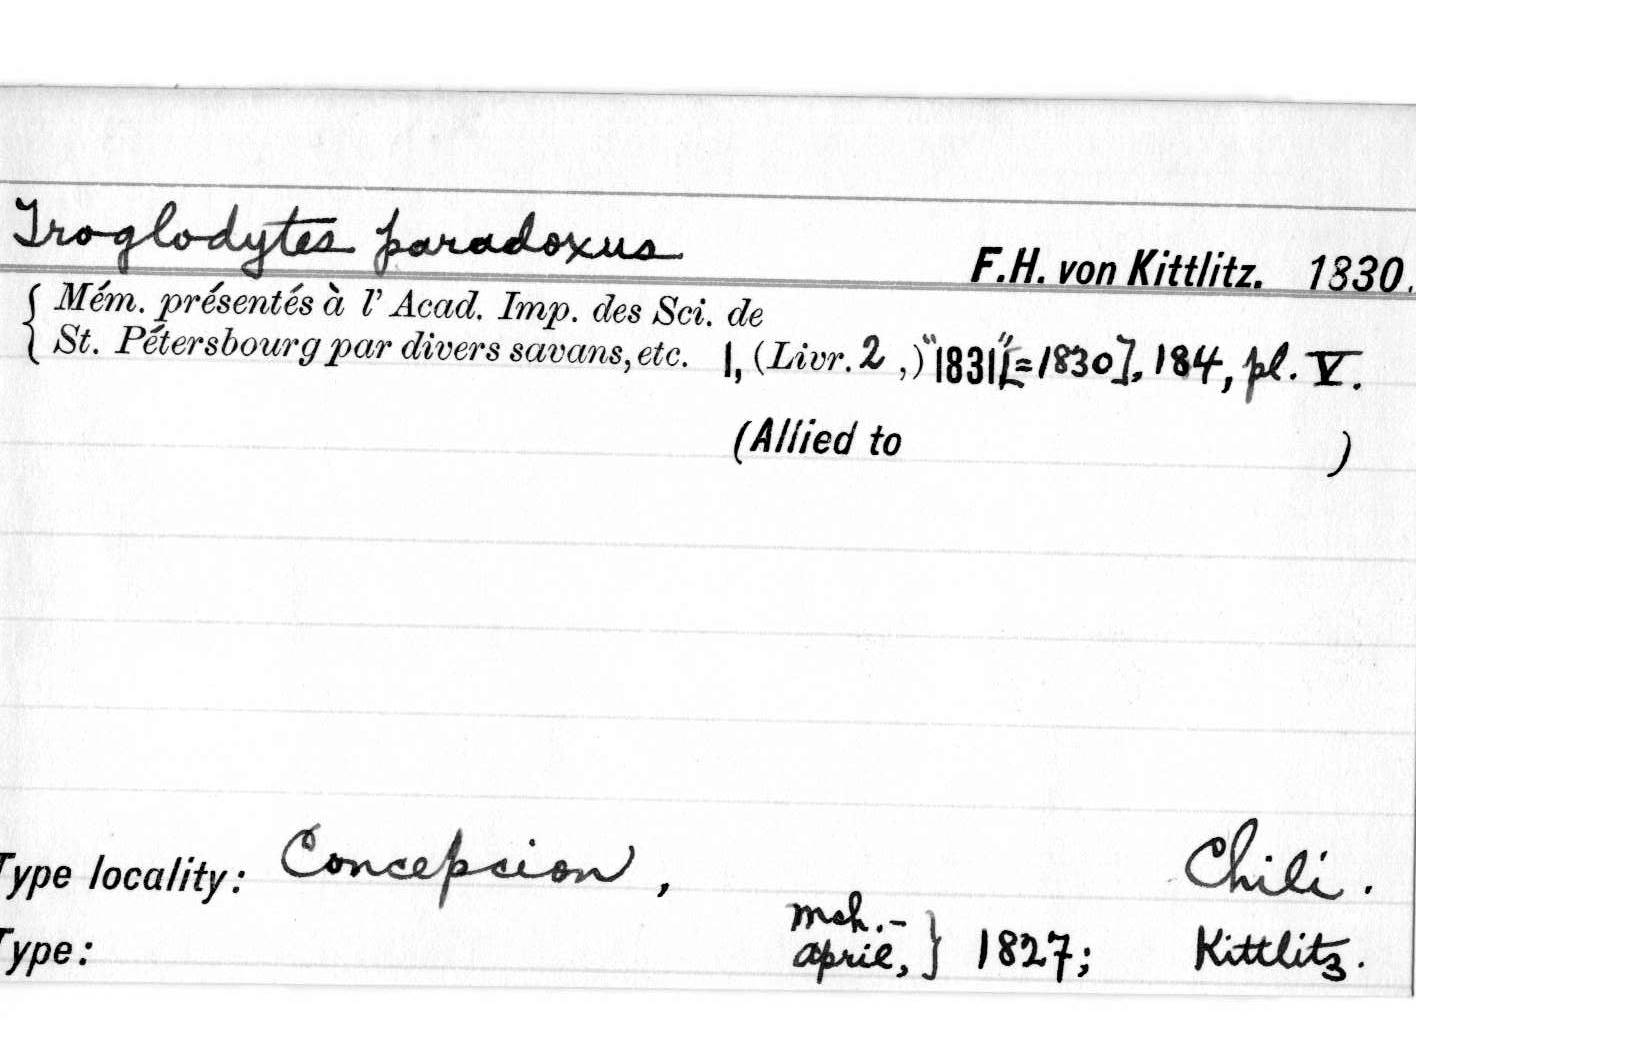 Troglodytes paradoxus F.H. von Kittlitz. 1830.
Mém. présentés à l' Acad. Imp. des Sci. de
St. Pétersbourg par divers savans, etc. 1, (Livr. 2 ,) "1831" [=1830], 184, pl. V.
(Allied to )
Type locality: Concepcion, Chili.
Type: mch.-
april, } 1827; Kittlitz.